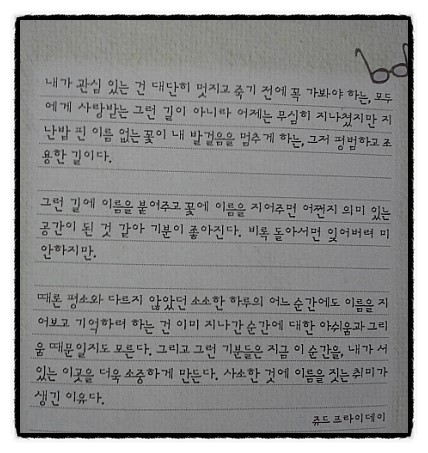 내가 관심 있는 건 대단히 멋지고 죽기 전에 꼭 가봐야 하는, 모두
에게 사랑받는 그런 길이 아니라 어제는 무심히 지나쳤지만 지
난밤 핀 이름 없는 꽃이 내 발걸음을 멈추게 하는, 그저 평범하고 조
용한 길이다.
그런 길에 이름을 붙여주고 꽃에 이름을 지어주면 어쩐지 의미 있는
공간이 된 것 같아 기분이 좋아진다. 비록 돌아서면 잊어버려 미
안하지만.
때론 평소와 다르지 않았던 소소한 하루의 어느 순간에도 이름을 지
어보고 기억하려 하는 건 이미 지나간 순간에 대한 아쉬움과 그리
움 때문일지도 모른다. 그리고 그런 기분들은 지금 이 순간을, 내가 서
있는 이곳을 더욱 소중하게 만든다. 사소한 것에 이름을 짓는 취미가
생긴 이유다.
쥬드 프라이데이